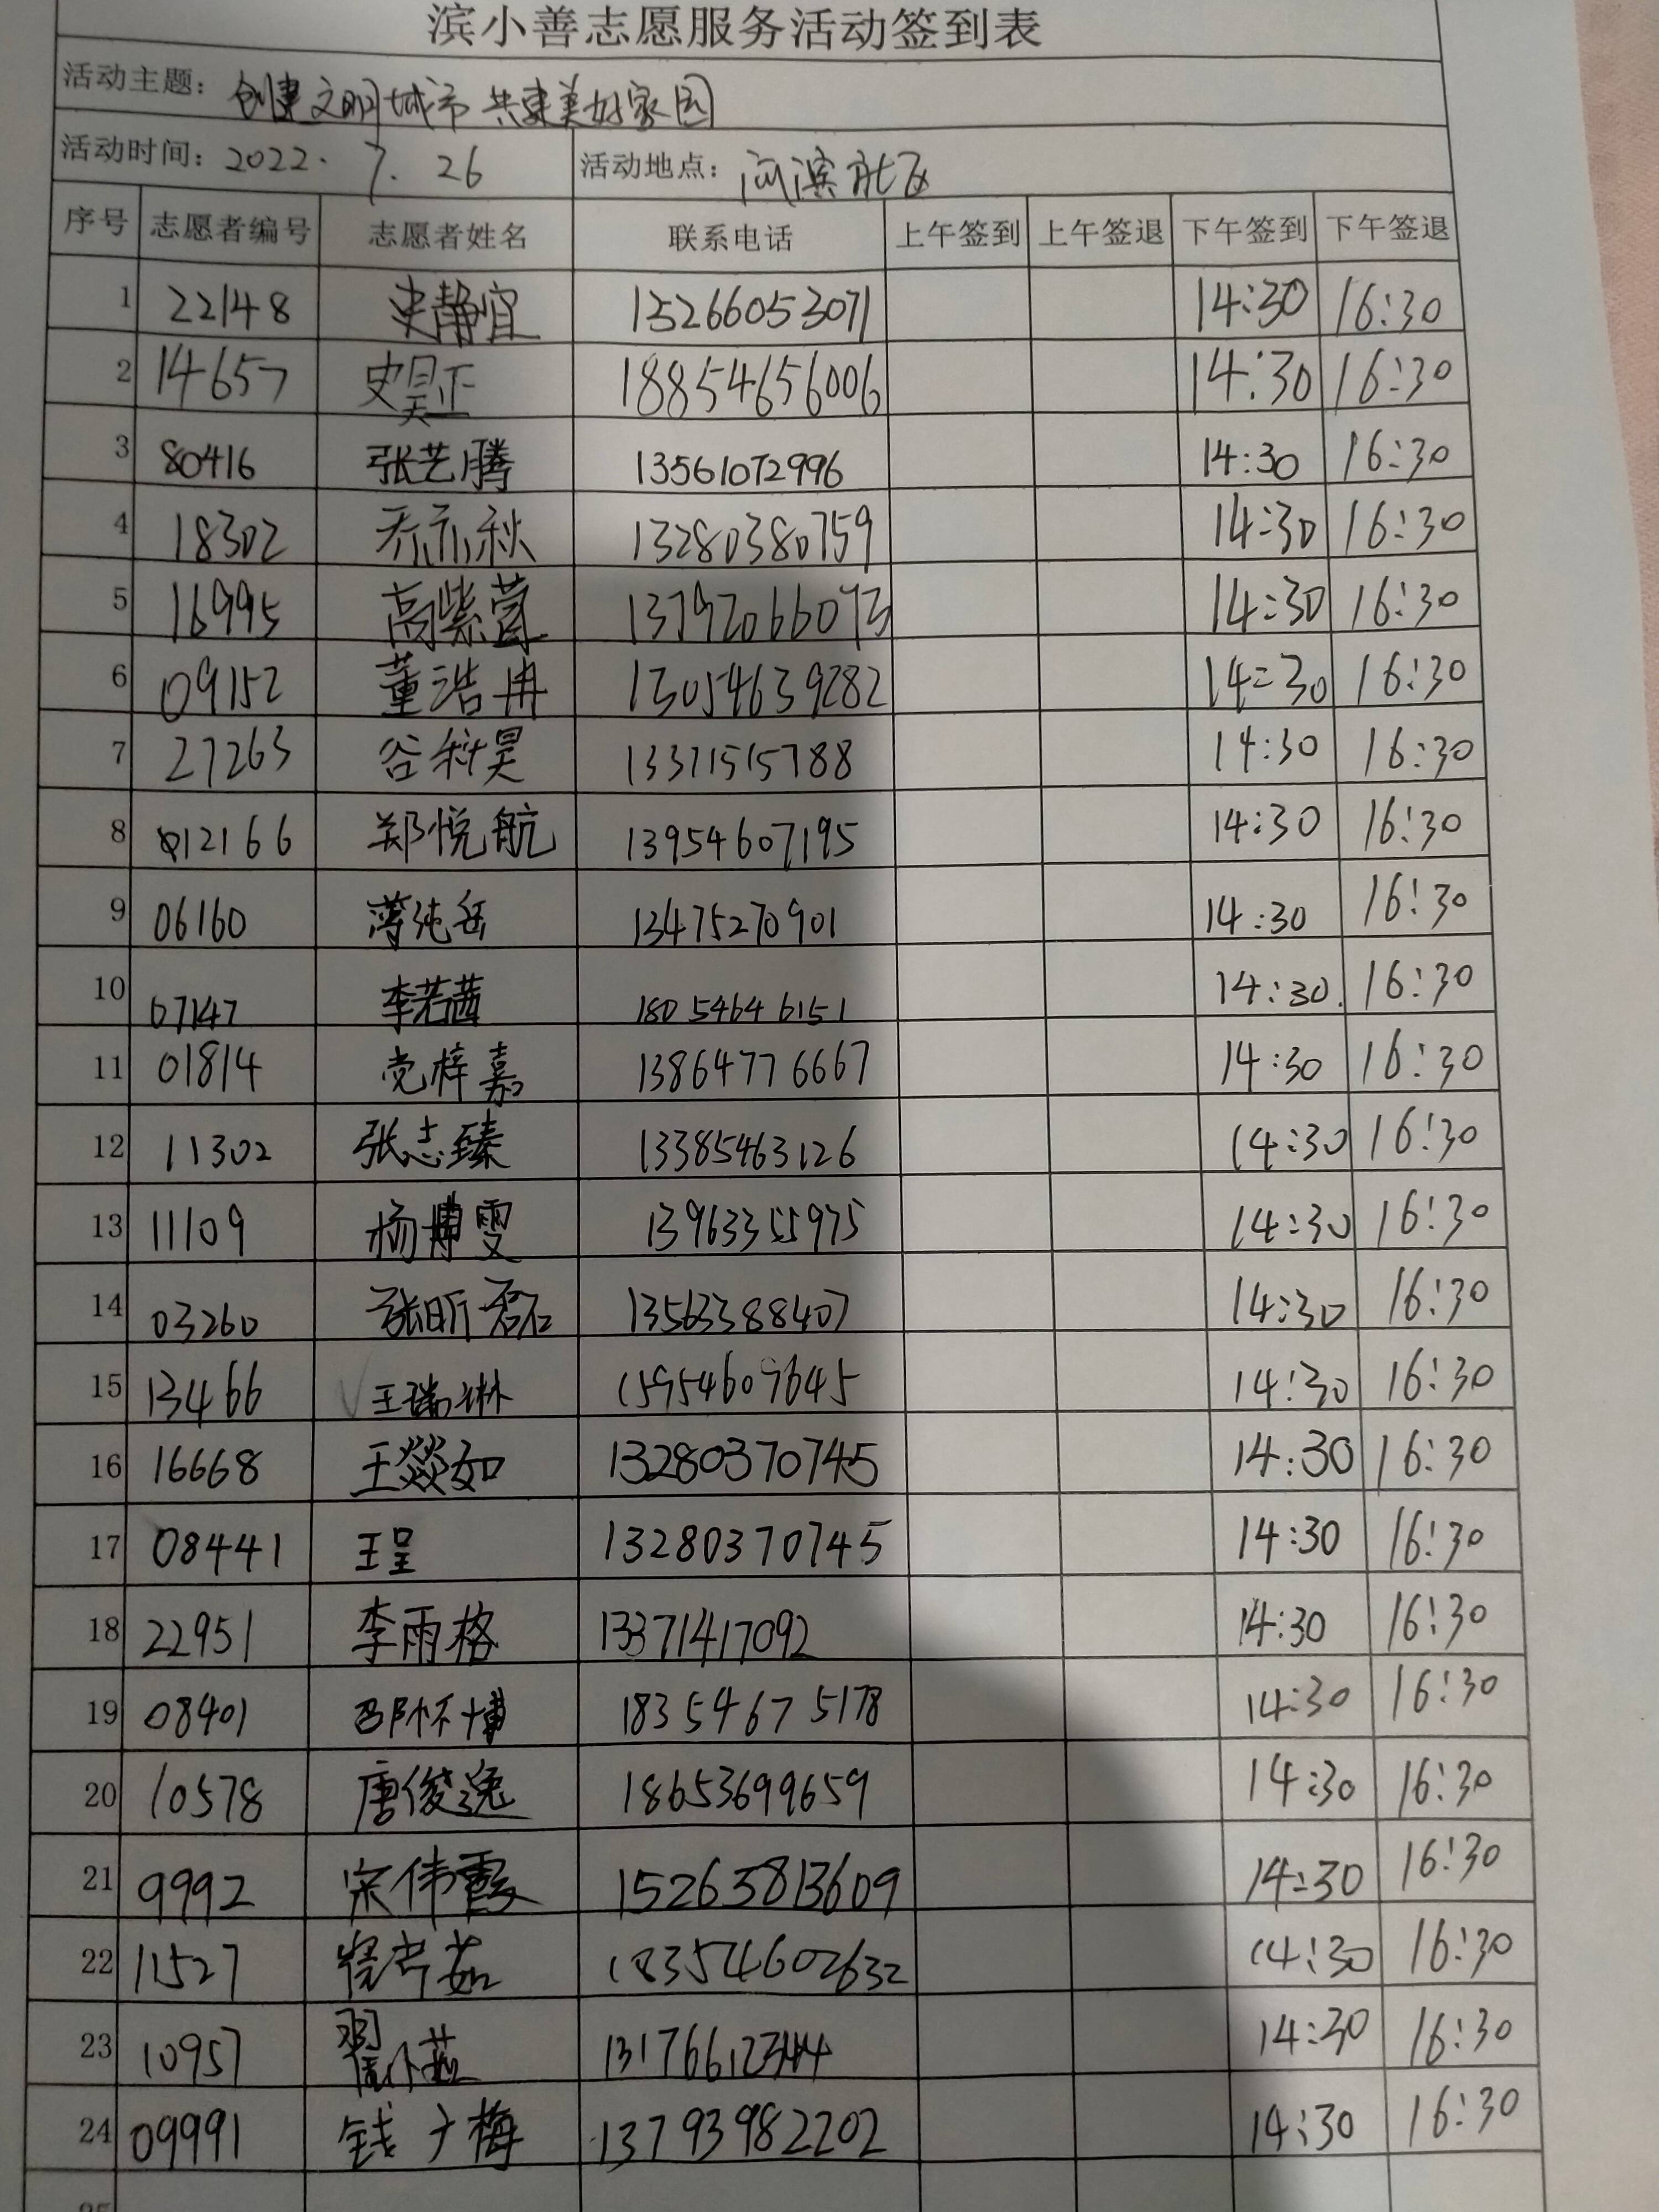 滨小善志愿服务活动签到表
活动主题： 创建文明城市 共建美好家园
活动时间：2022. 7. 26 活动地点： 河滨社区
序号 志愿者编号 志愿者姓名 联系电话 上午签到 上午签退 下午签到 下午签退
1 22148 史静宜 13266053071 14:30 16:30
2 14657 史昊正 18854656006 14:30 16:30
3 80416 张艺腾 13561072996 14:30 16:30
4 18302 乔亦秋 13280380759 14:30 16:30
5 16995 高紫萱 13792066073 14:30 16:30
6 09152 董浩冉 13054639282 14:30 16:30
7 27263 谷科昊 13371515788 14:30 16:30
8 12166 郑悦航 13954607195 14:30 16:30
9 06160 薄纯岳 13475270901 14:30 16:30
10 07147 李若茜 18054646151 14:30 16:30
11 01814 党梓嘉 13864776667 14:30 16:30
12 11302 张志臻 13385463126 14:30 16:30
13 11109 杨博雯 13963355975 14:30 16:30
14 03260 张昕磊 13563388407 14:30 16:30
15 13466 王瑞琳 15954609645 14:30 16:30
16 16668 王燚如 13280370745 14:30 16:30
17 08441 王呈 13280370745 14:30 16:30
18 22951 李雨格 13371417092 14:30 16:30
19 08401 邵怀博 18354675178 14:30 16:30
20 10578 唐俊逸 18653699659 14:30 16:30
21 9992 宋伟霞 15263813609 14:30 16:30
22 11527 茹 18354602632 14:30 16:30
23 10957 翟小燕 14:30 16:30
24 09991 钱 梅 13793982202 14:30 16:30